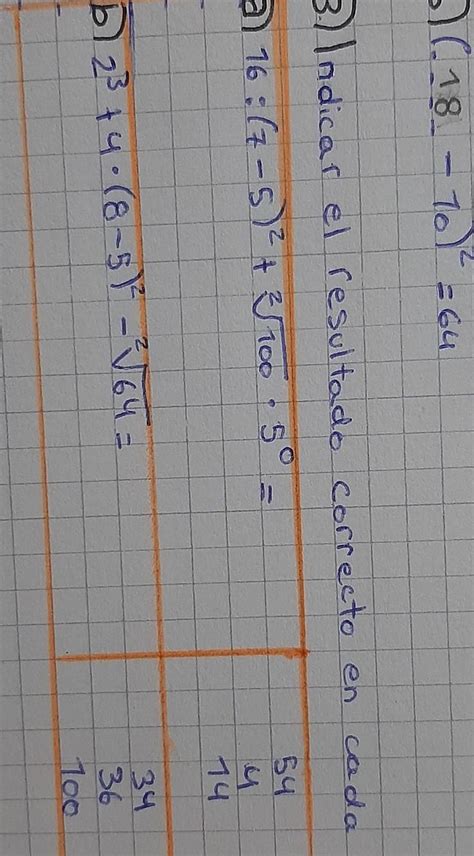 ) (18 - 10)² = 64
3) Indicar el resultado correcto en cada
a) 16 : (7 - 5)² + ²√100 · 5⁰ =
54
4
14
b) 2³ + 4 · (8 - 5)² - ²√64 =
34
36
100